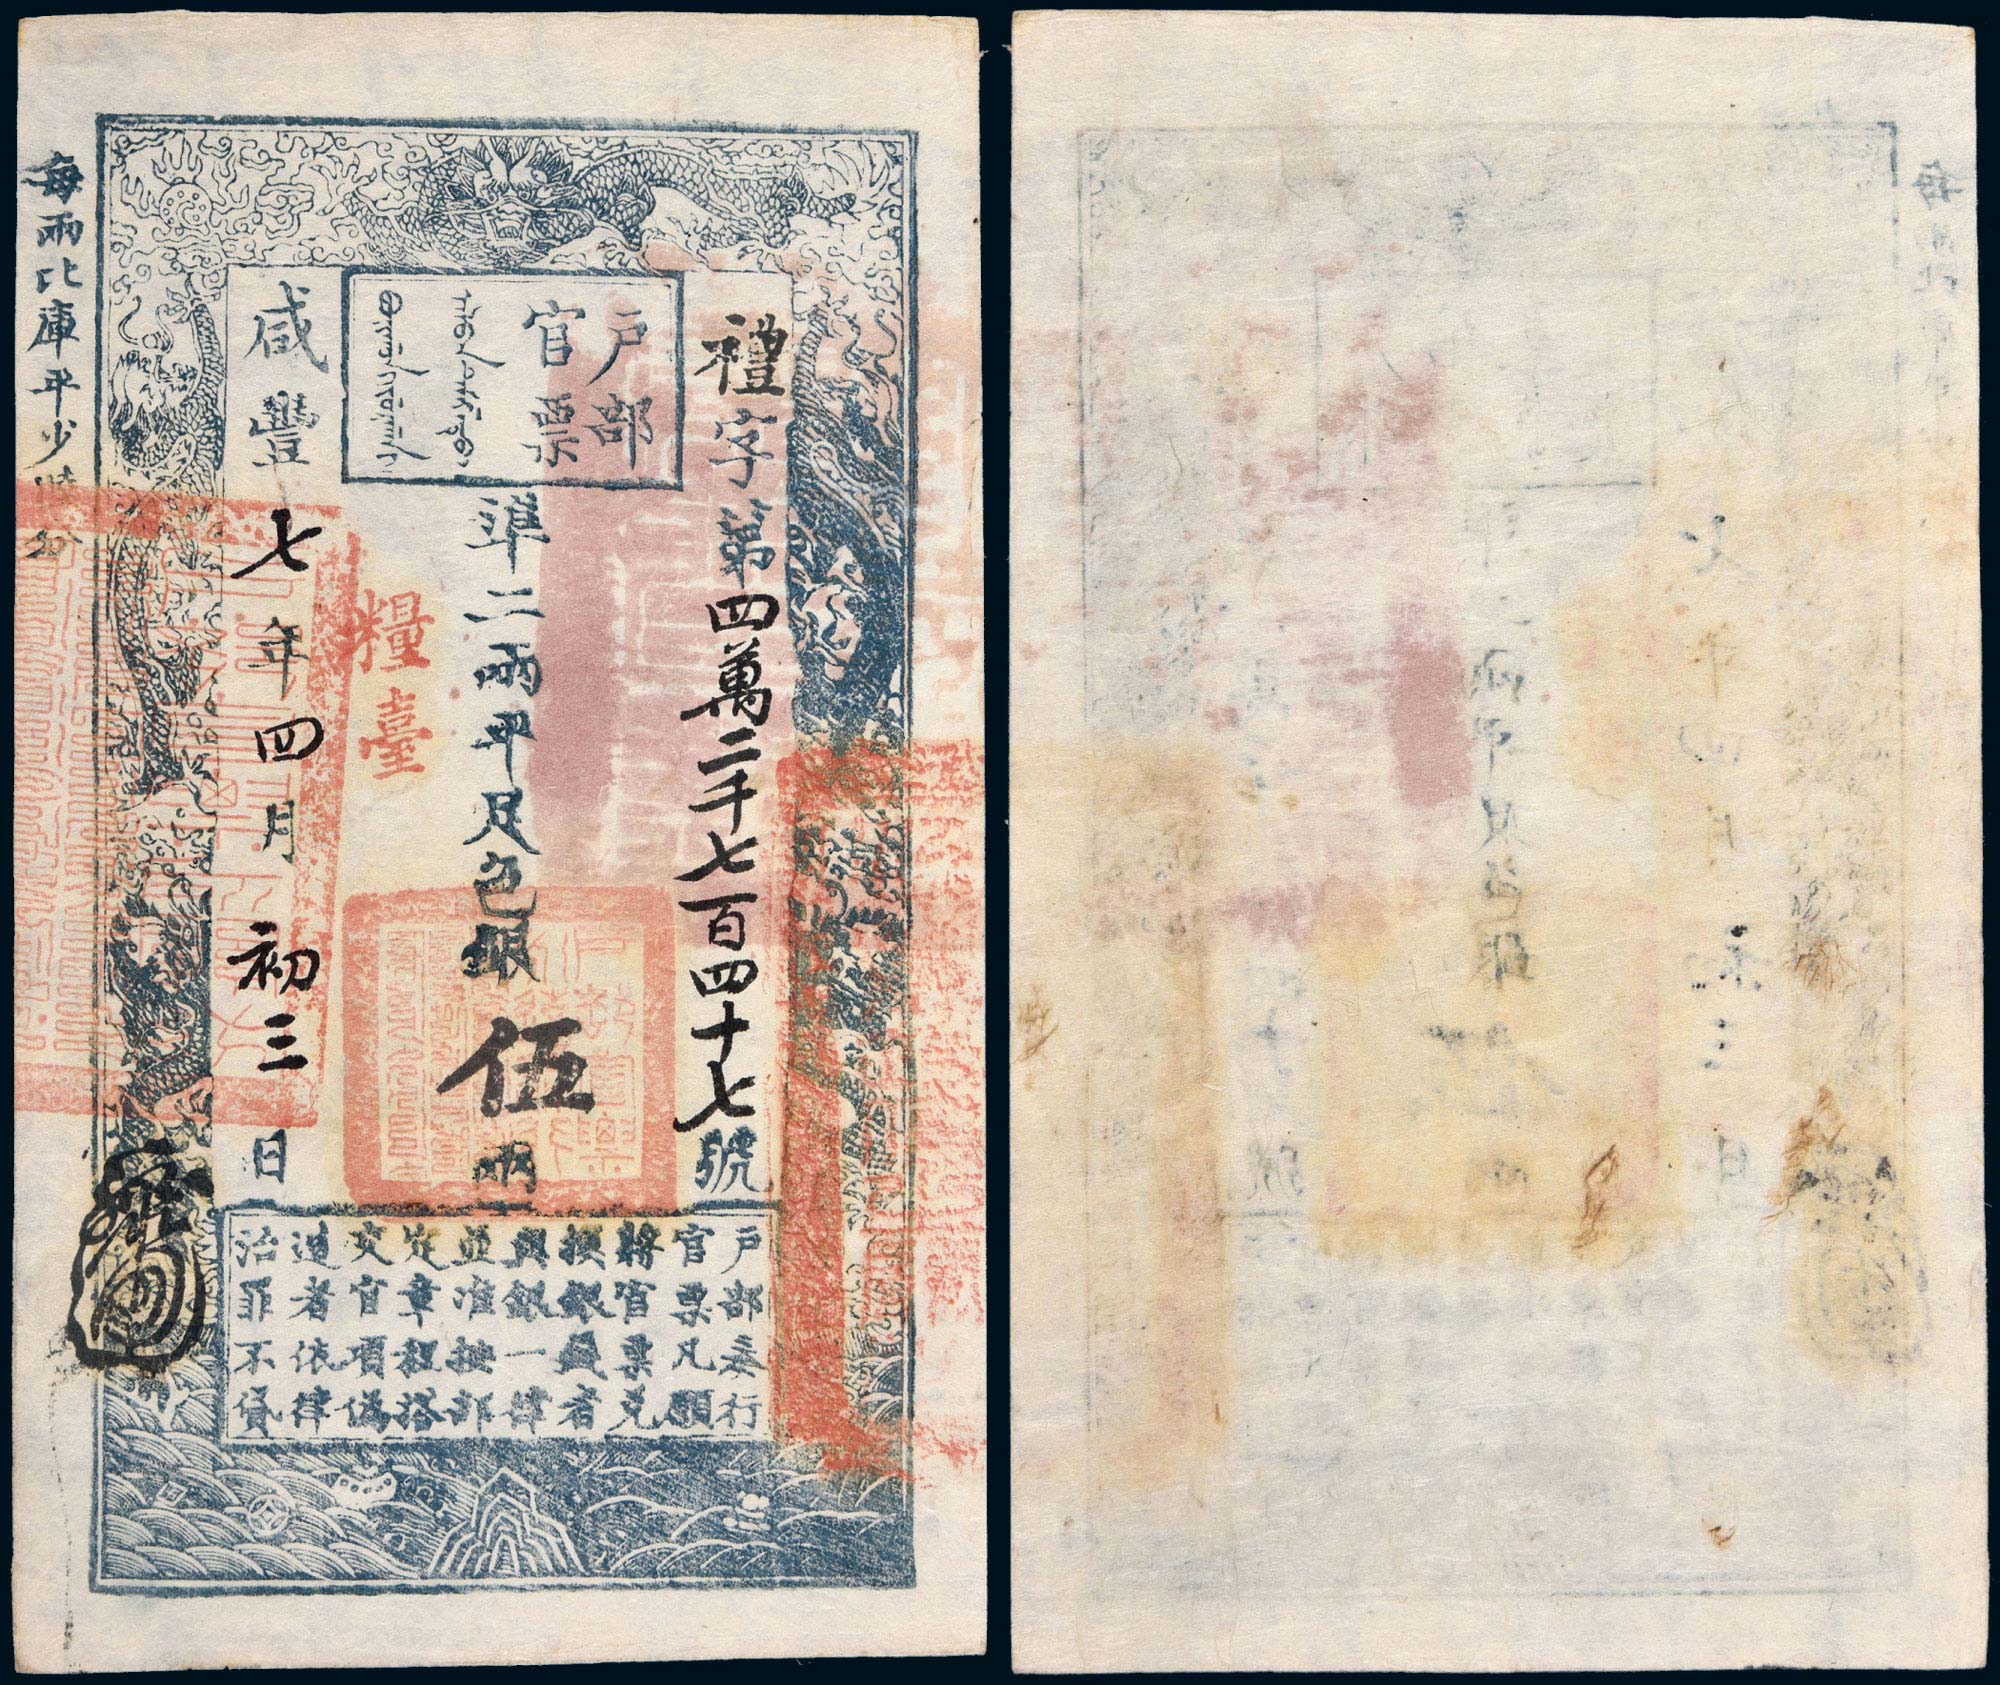 戶部
官票
禮字第四萬二千七百四十七號
準二兩平足色銀伍兩
咸豐七年四月初三日
糧臺
每兩比庫平少陸分
戶部奏行
官票凡願
將官票兌
換銀錢者
與銀一律
並准按部
定章程搭
交官項僞
造者依律
治罪不貸